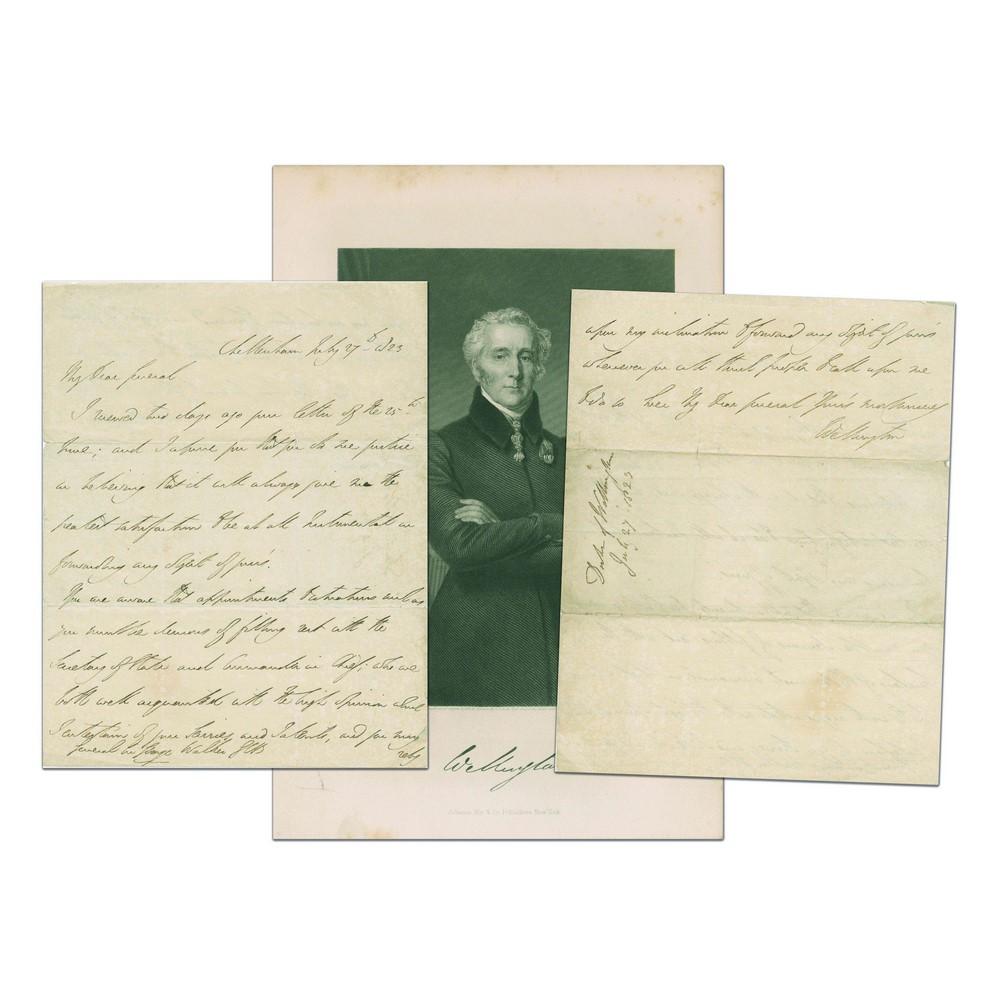 Cheltenham July 27th 1823
My Dear General
I received two days ago your letter of the 25th
Inst; and I assure you that you do me justice
in believing that it will always give me the
greatest satisfaction to be at all Instrumental in
forwarding any object of yours.
You are aware that appointments & situations such as
you would be desirous of filling rest with the
Secretary of State and Commander in Chief; who are
both well acquainted with the high opinion which
I entertain of your Services and Talents, and you may
General Sir George Walker GCB
rely
upon my inclination to forward any object of yours
whenever you will think proper to call upon me
to do so
My Dear General Yours most
Wellington
Duke of Wellington
July 27 1823
Wellington
Johnson, Fry & Co. Publishers, New York